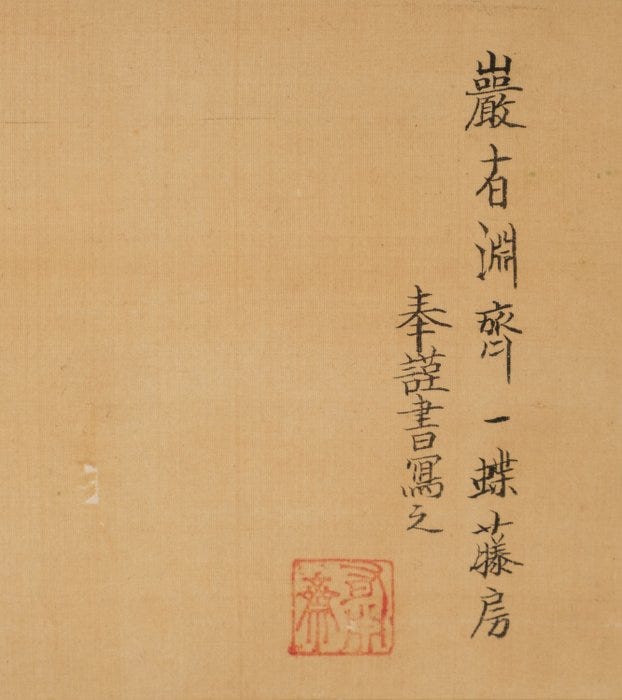 巖有淵齊一蝶藤房
奉謹書寫之